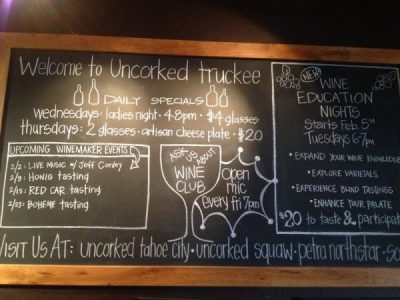 Welcome to Uncorked truckee
DAILY SPECIALS
wednesdays: ladies night · 4-8pm · $4 glasses
thursdays: 2 glasses · artisan cheese plate · $20
UPCOMING WINEMAKER EVENTS
2/2: LIVE MUSIC w/ Jeff Conley
2/8: HONIG tasting
2/15: RED CAR tasting
2/23: BOHEME tasting
ASK US ABOUT
WINE
CLUB
open
mic
every
fri 7pm
NEW
WINE
EDUCATION
NIGHTS
Starts Feb. 5th
Tuesdays 6-7pm
• EXPAND YOUR WINE KNOWLEDGE
• EXPLORE VARIETALS
• EXPERIENCE BLIND TASTINGS
• ENHANCE YOUR PALATE
$20 to taste & participate
VISIT US AT: uncorked tahoe city · uncorked squaw · petra northstar · so